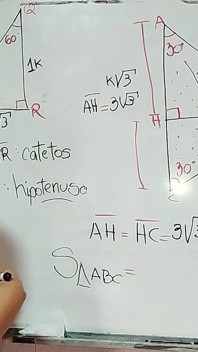 Q
60°
1k
R
√3
R: catetos
: hipotenusa
A
30°
k√3
AH = 3√3
H
30°
C
AH = HC = 3√3
S△ABC =